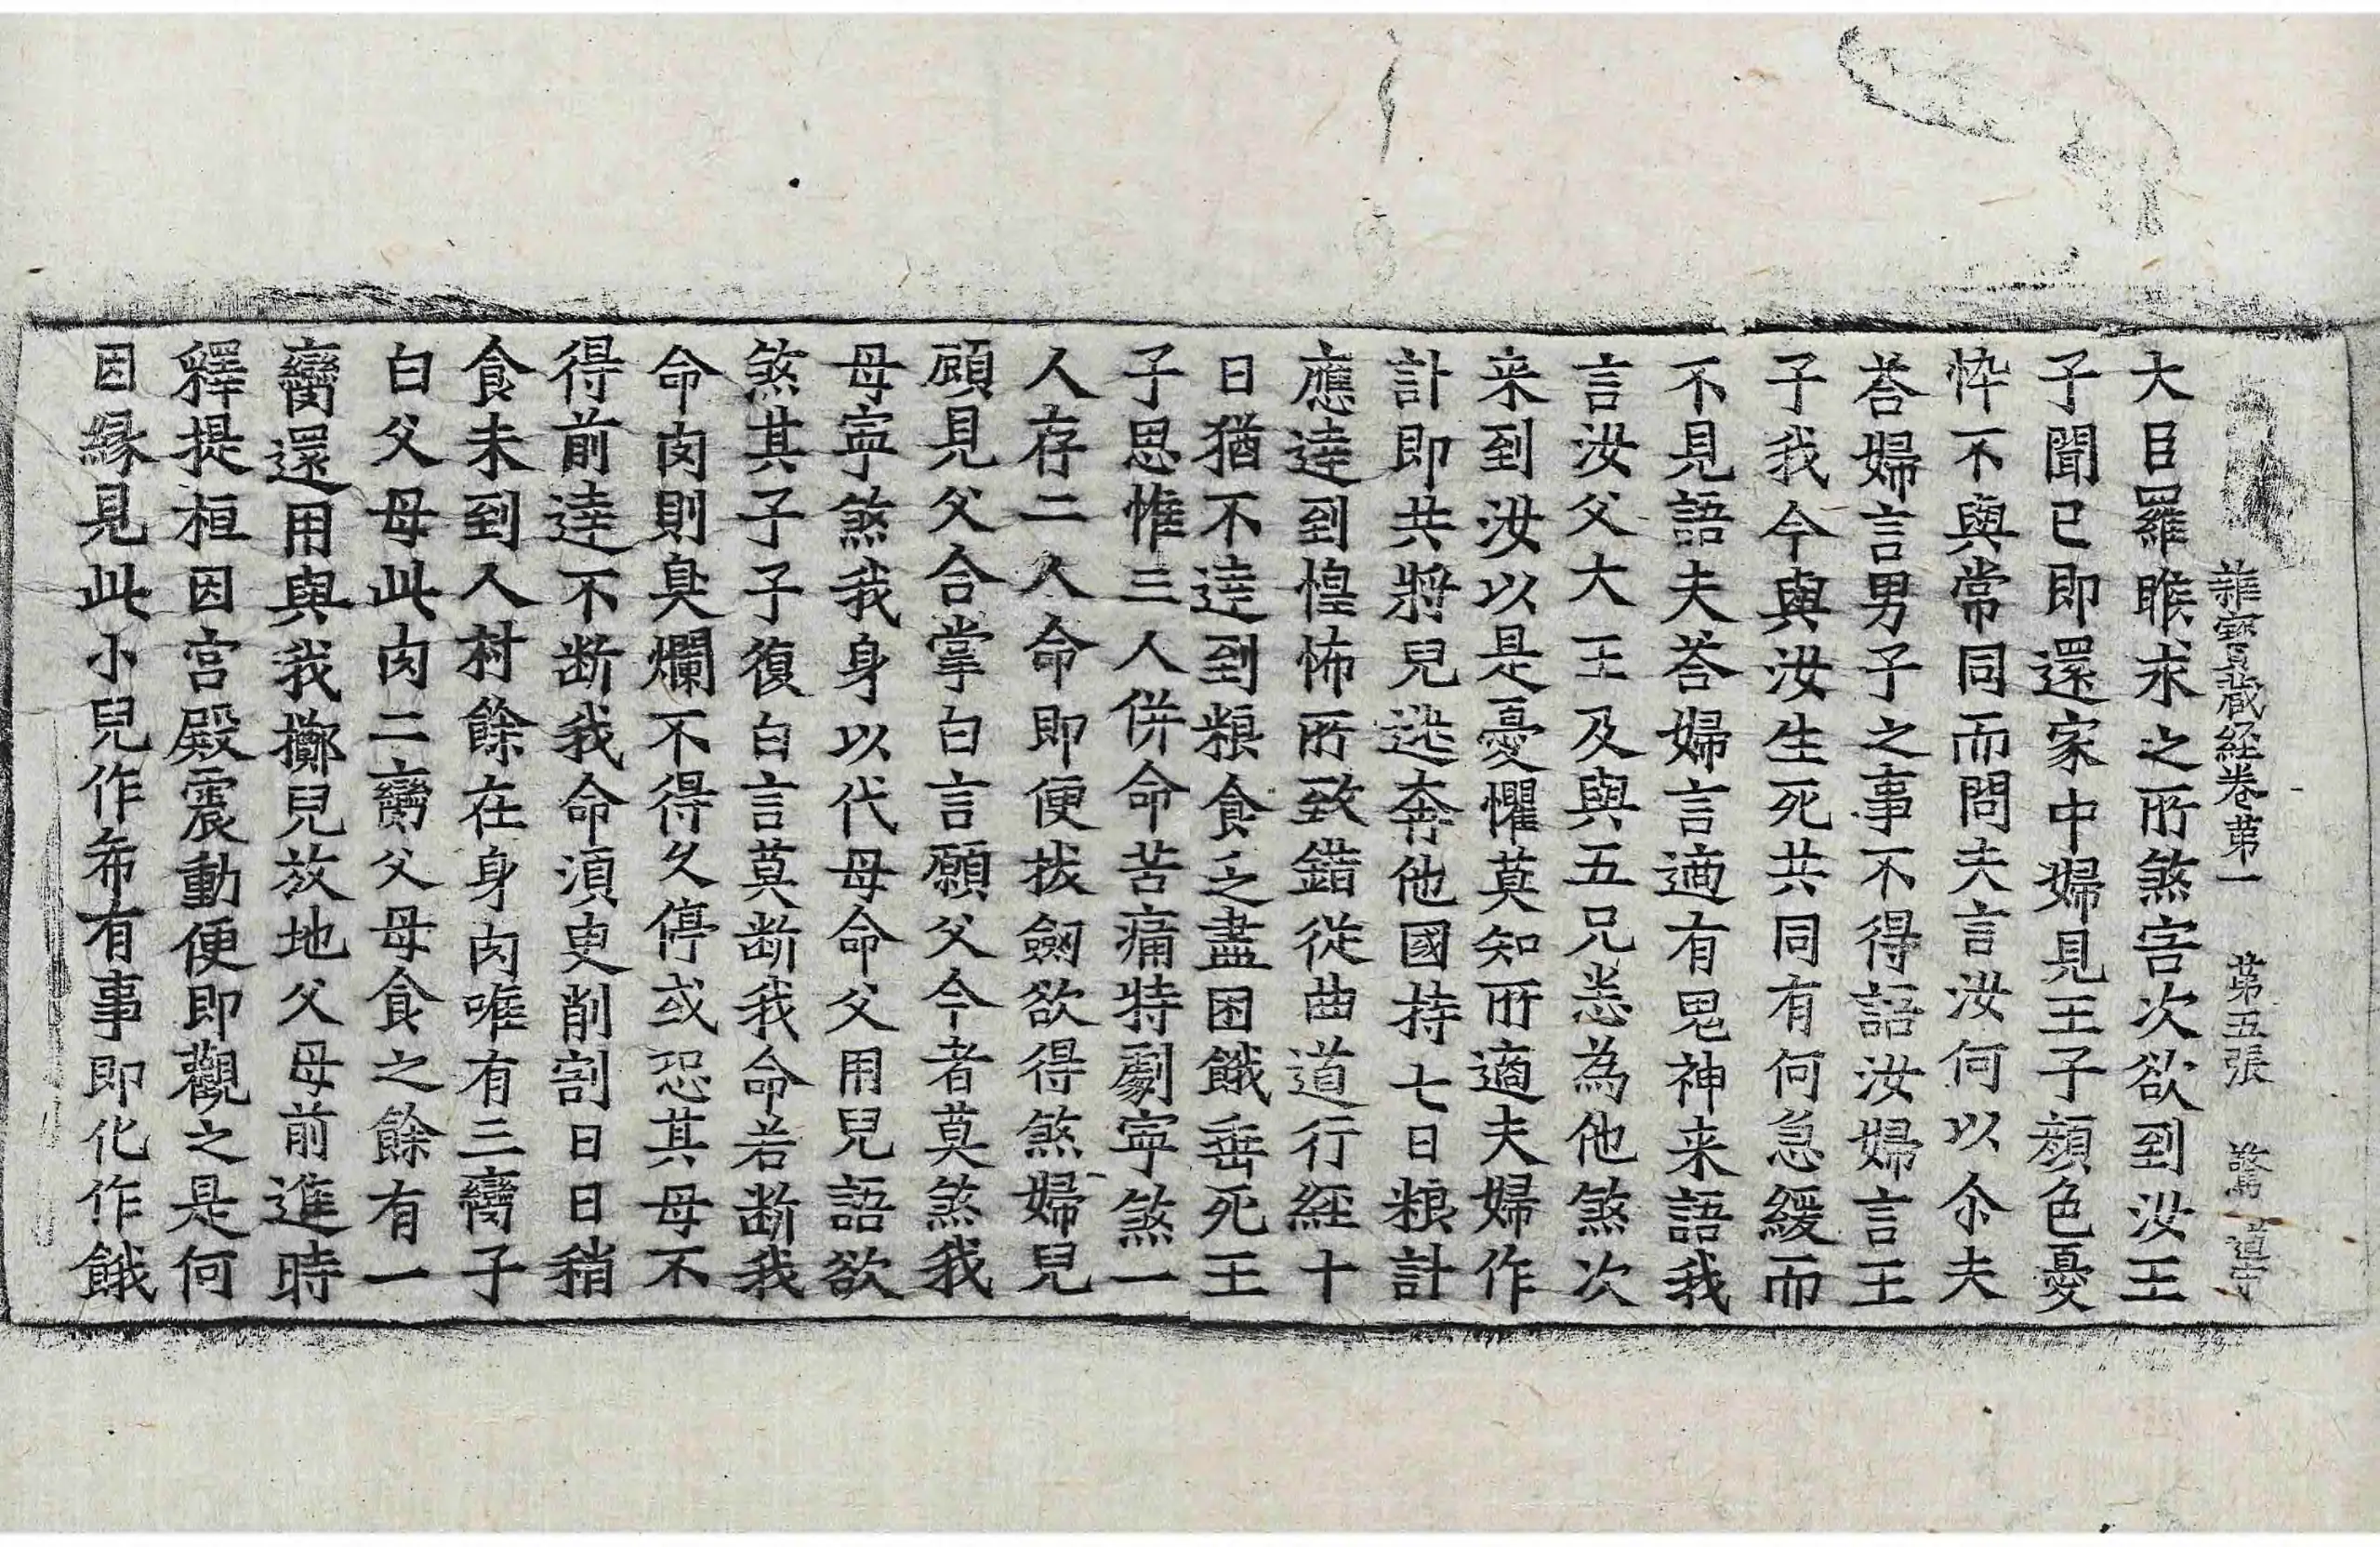 雜寶藏経卷苐一　苐五張　驚　道守
大臣羅睺求之所煞害次欲到汝王
子聞已即還家中婦見王子顏色憂
悴不與常同而問夫言汝何以尒夫
荅婦言男子之事不得語汝婦言王
子我今與汝生死共同有何急緩而
不見語夫荅婦言適有鬼神来語我
言汝父大王及與五兄悉為他煞次
来到汝以是憂懼莫知所適夫婦作
計即共將兒逃奔他國持七日粮計
應達到惶怖所致錯從曲道行経十
日猶不達到粮食乏盡困餓垂死王
子思惟三人併命苦痛特劇寧煞一
人存二人命即便拔劒欲得煞婦兒
顧見父合掌白言願父今者莫煞我
母寧煞我身以代母命父用兒語欲
煞其子子復白言莫断我命若断我
命肉則臭爛不得久停或恐其母不
得前達不断我命湏臾削割日日稍
食未到人村餘在身肉唯有三臠子
白父母此肉二臠父母食之餘有一
臠還用與我擲兒放地父母前進時
釋提桓因宮殿震動便即觀之是何
因縁見此小兒作希有事即化作餓